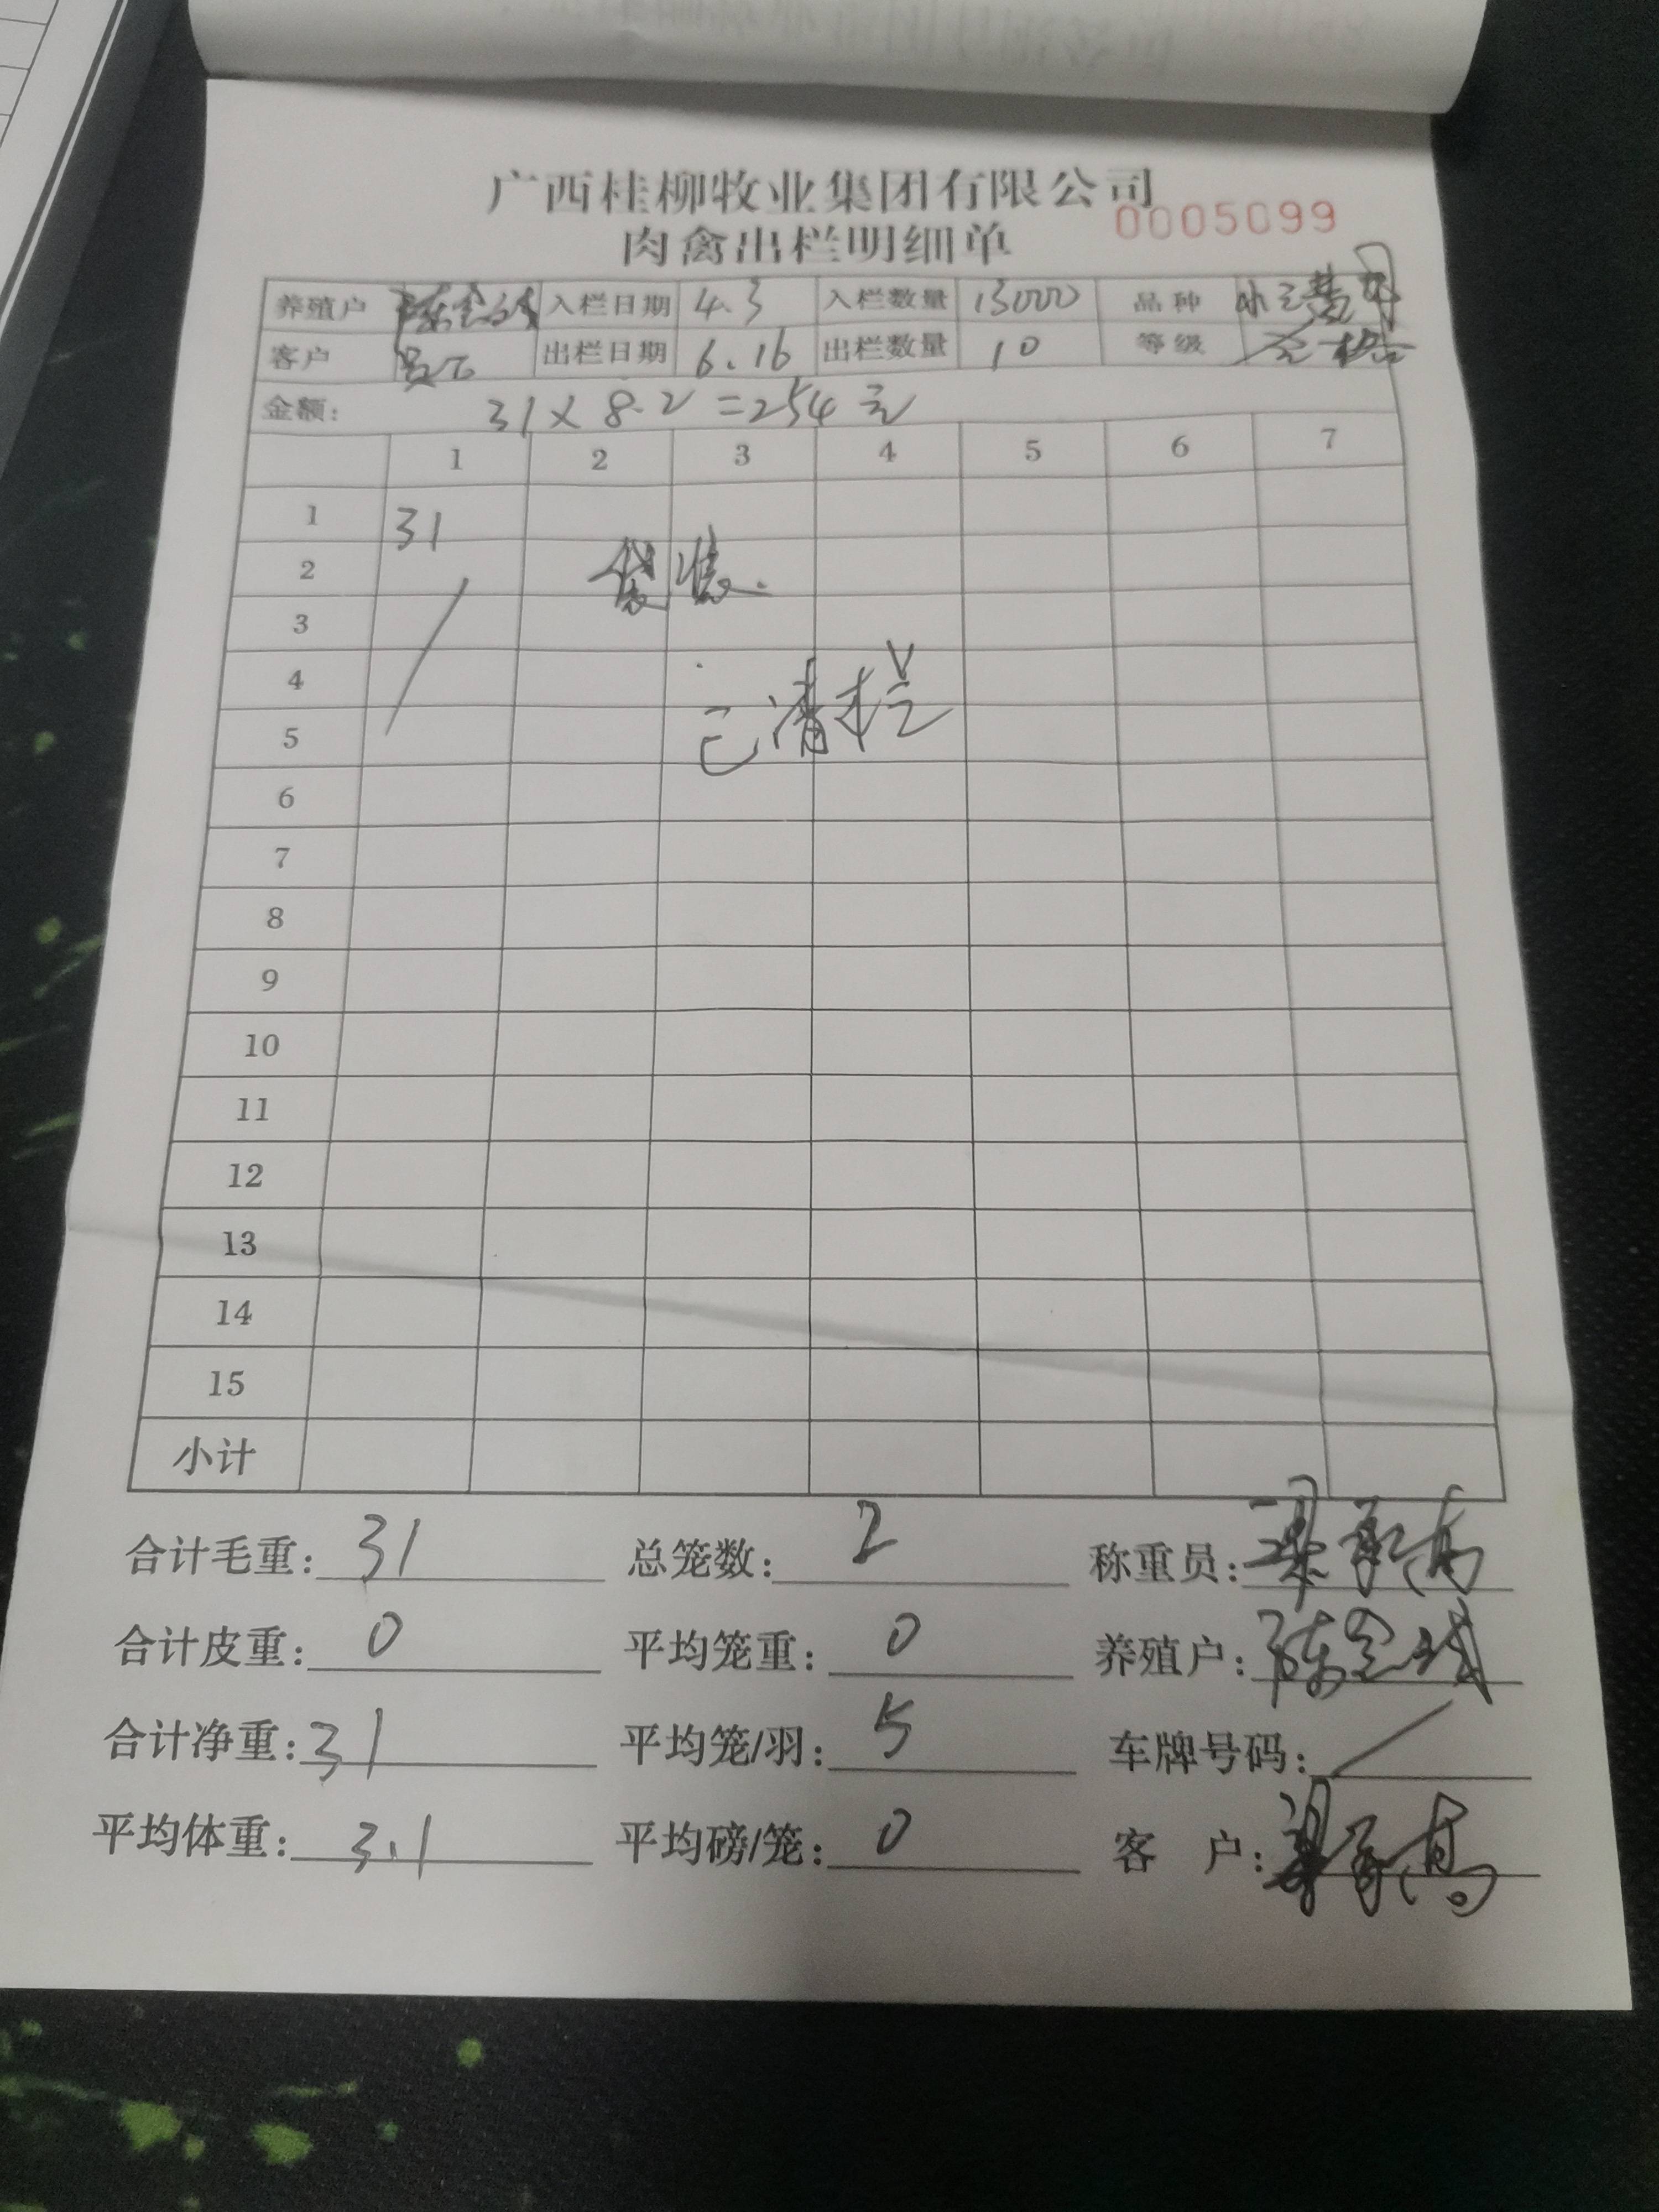 广西桂柳牧业集团有限公司
0005099
肉禽出栏明细单
养殖户 入栏日期 4.3 入栏数量 13000 品种
客户 员工 出栏日期 6.16 出栏数量 10 等级 合格
金额: 31×8.2=254元
1 2 3 4 5 6 7
1 31
2 袋装.
3
4
5 已清栏
6
7
8
9
10
11
12
13
14
15
小计
合计毛重: 31 总笼数: 2 称重员:
合计皮重: 0 平均笼重: 0 养殖户:
合计净重: 31 平均笼/羽: 5 车牌号码: /
平均体重: 3.1 平均磅/笼: 0 客 户: